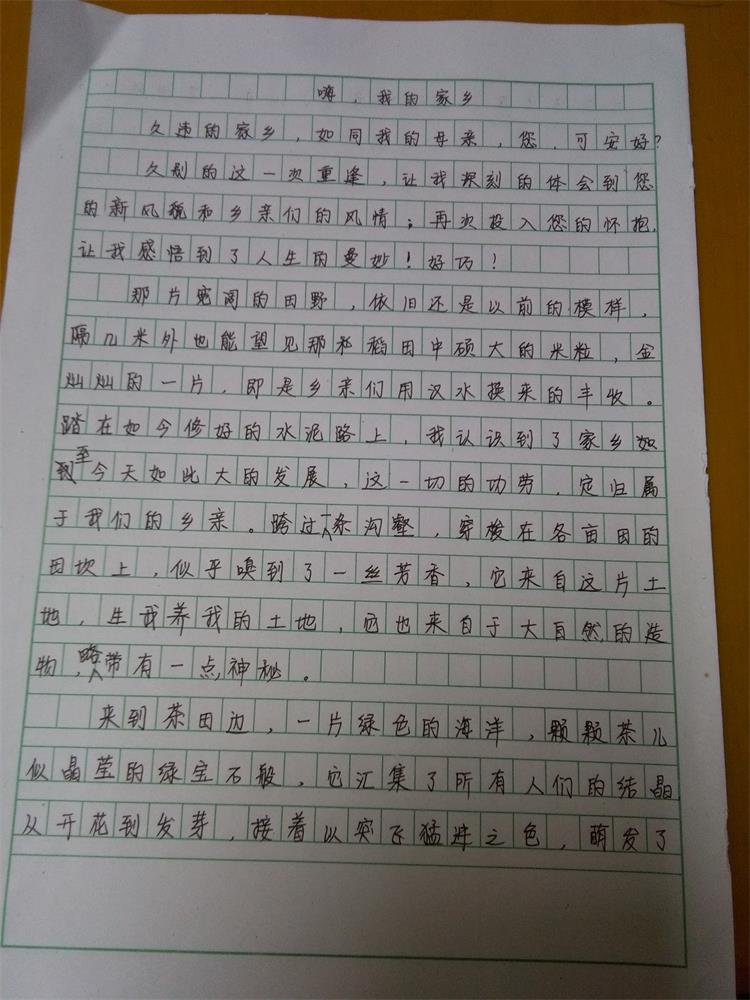 嗨，我的家乡
久违的家乡，如同我的母亲，您，可安好？
久别的这一次重逢，让我深刻的体会到您
的新风貌和乡亲们的风情；再次投入您的怀抱，
让我感悟到了人生的曼妙！好巧！
那片宽阔的田野，依旧还是以前的模样，
隔几米外也能望见那私稻田中硕大的米粒，金
灿灿的一片，即是乡亲们用汉水换来的丰收。
踏在如今修好的水泥路上，我认识到了家乡如
至今天如此大的发展，这一切的功劳，定归属
于我们的乡亲。跨过一条沟壑，穿梭在各亩田的
田坎上，似乎嗅到了一丝芳香，它来自这片土
地，生我养我的土地，它也来自于大自然的造
物，略带有一点神秘。
来到茶田边，一片绿色的海洋，颗颗茶儿
似晶莹的绿宝石般，它汇集了所有人们的结晶
从开花到发芽，接着以突飞猛进之色，萌发了